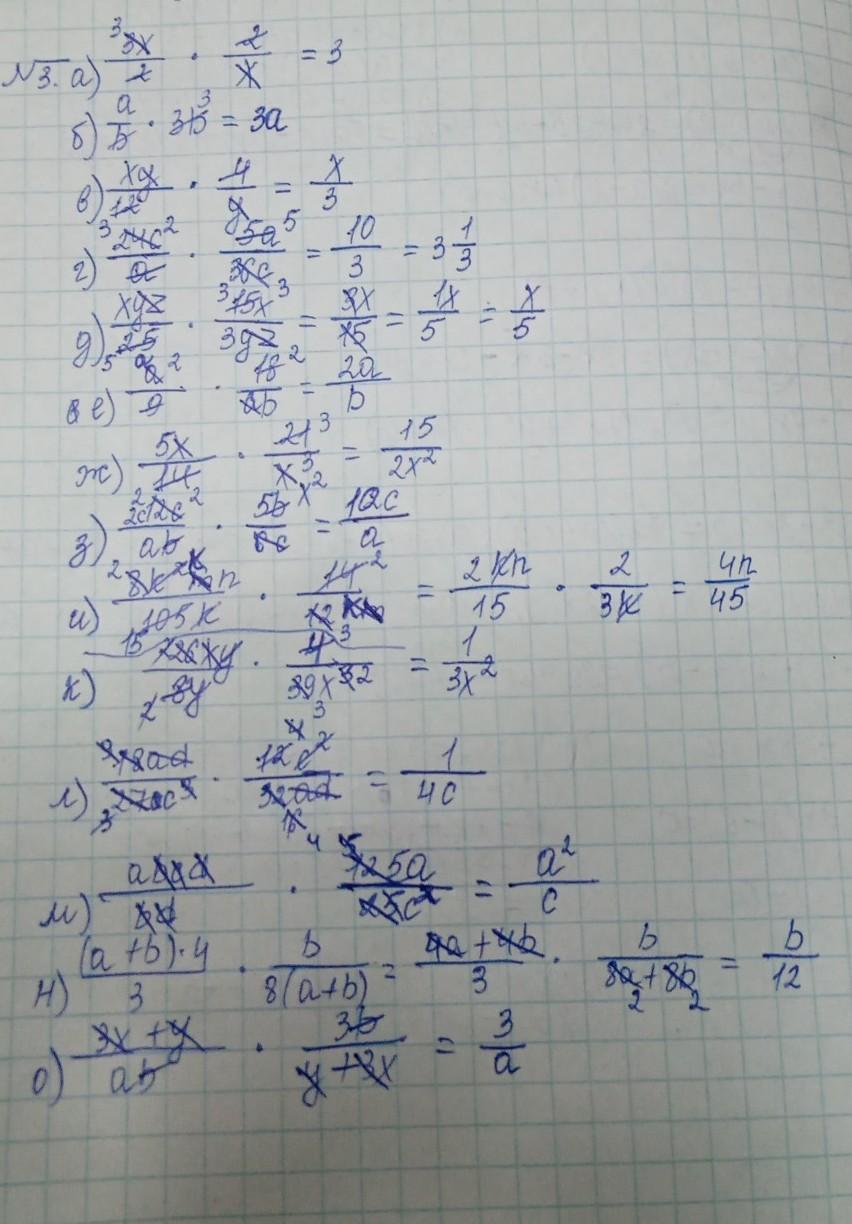 №3. а) 3x/2 · 2/x = 3
б) a/b · 3b = 3a
в) xy/12 · 4/y = x/3
г) 24c/a · 5a/36c = 10/3 = 3 1/3
д) xyz/25 · 15x/3yz = 3x/15 = 1x/5 = x/5
е) a²/9 · 18/ab = 2a/b
ж) 5x/14 · 21/x³ = 15/2x²
з) 12c²/ab · 5b/6c = 10c/a
и) /105k · 14/ = 2kn/15 · 2/3k = 4n/45
к) /8y · = 1/3x²
л) 18ad/ · 12c²/32ad = 1/4c
м) · 125a/ = a²/c
н) (a+b)·4/3 · b/8(a+b) = 4a+4b/3 · b/8a+8b = b/12
о) 3x+y/ab · 3b/y+3x = 3/a